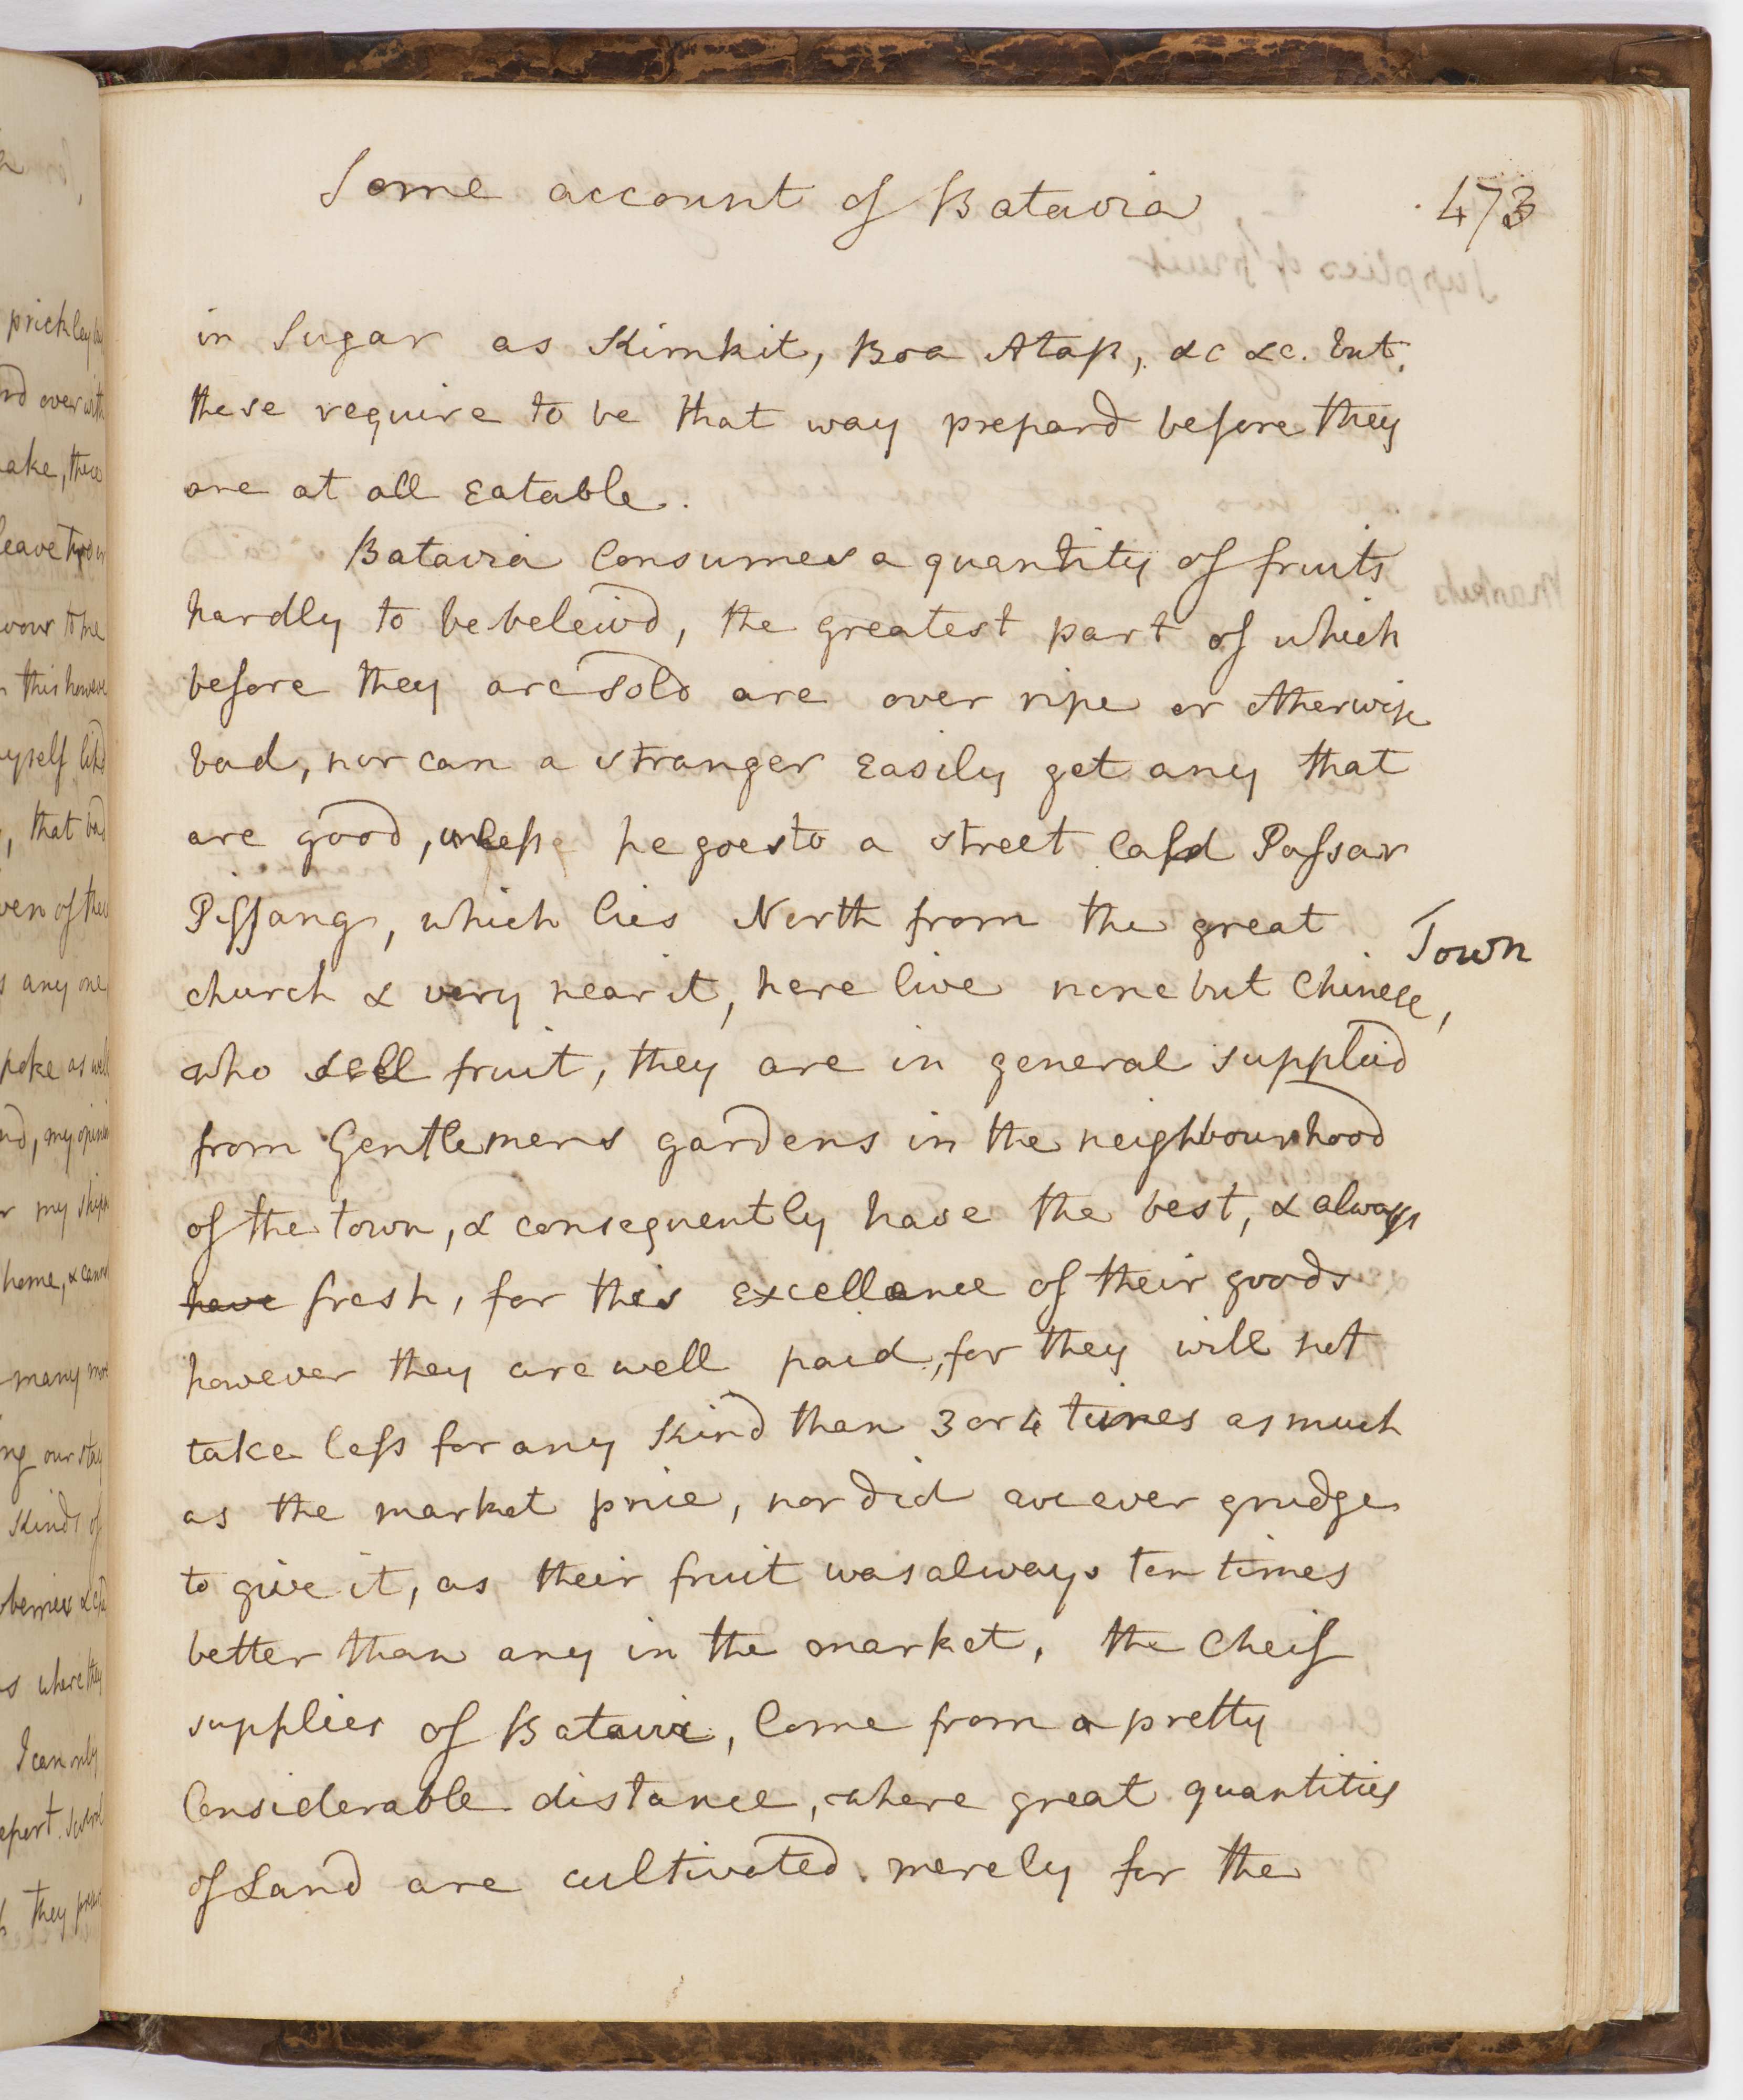 Some account of Batavia 473
in Sugar as Kimkit, Boa Atap, &c &c. but
these require to be that way prepard before they
are at all eatable.
Batavia Consumes a quantity of fruits
hardly to be beleivd, the greatest part of which
before they are sold are over ripe or otherwise
bad, nor can a stranger easily get any that
are good, unless he goes to a street calld Passar
Pissang, which lies North from the great
Town
church & very near it, here live none but Chinese,
who sell fruit, they are in general supplied
from Gentlemens gardens in the neighbourhood
of the town, & consequently have the best, & always
have fresh, for this excellence of their goods
however they are well paid, for they will not
take less for any kind than 3 or 4 times as much
as the market price, nor did we ever grudge
to give it, as their fruit was always ten times
better than any in the market, the cheif
supplies of Batavia, Come from a pretty
Considerable distance, where great quantities
of Land are cultivated merely for the
prickley
over with
ake, these
leave
vour to me
this however
yself
, that bad
ven of the
s any one
poke as well
my
home, &
many
ng our stay
kinds of
s where they
I can only
they